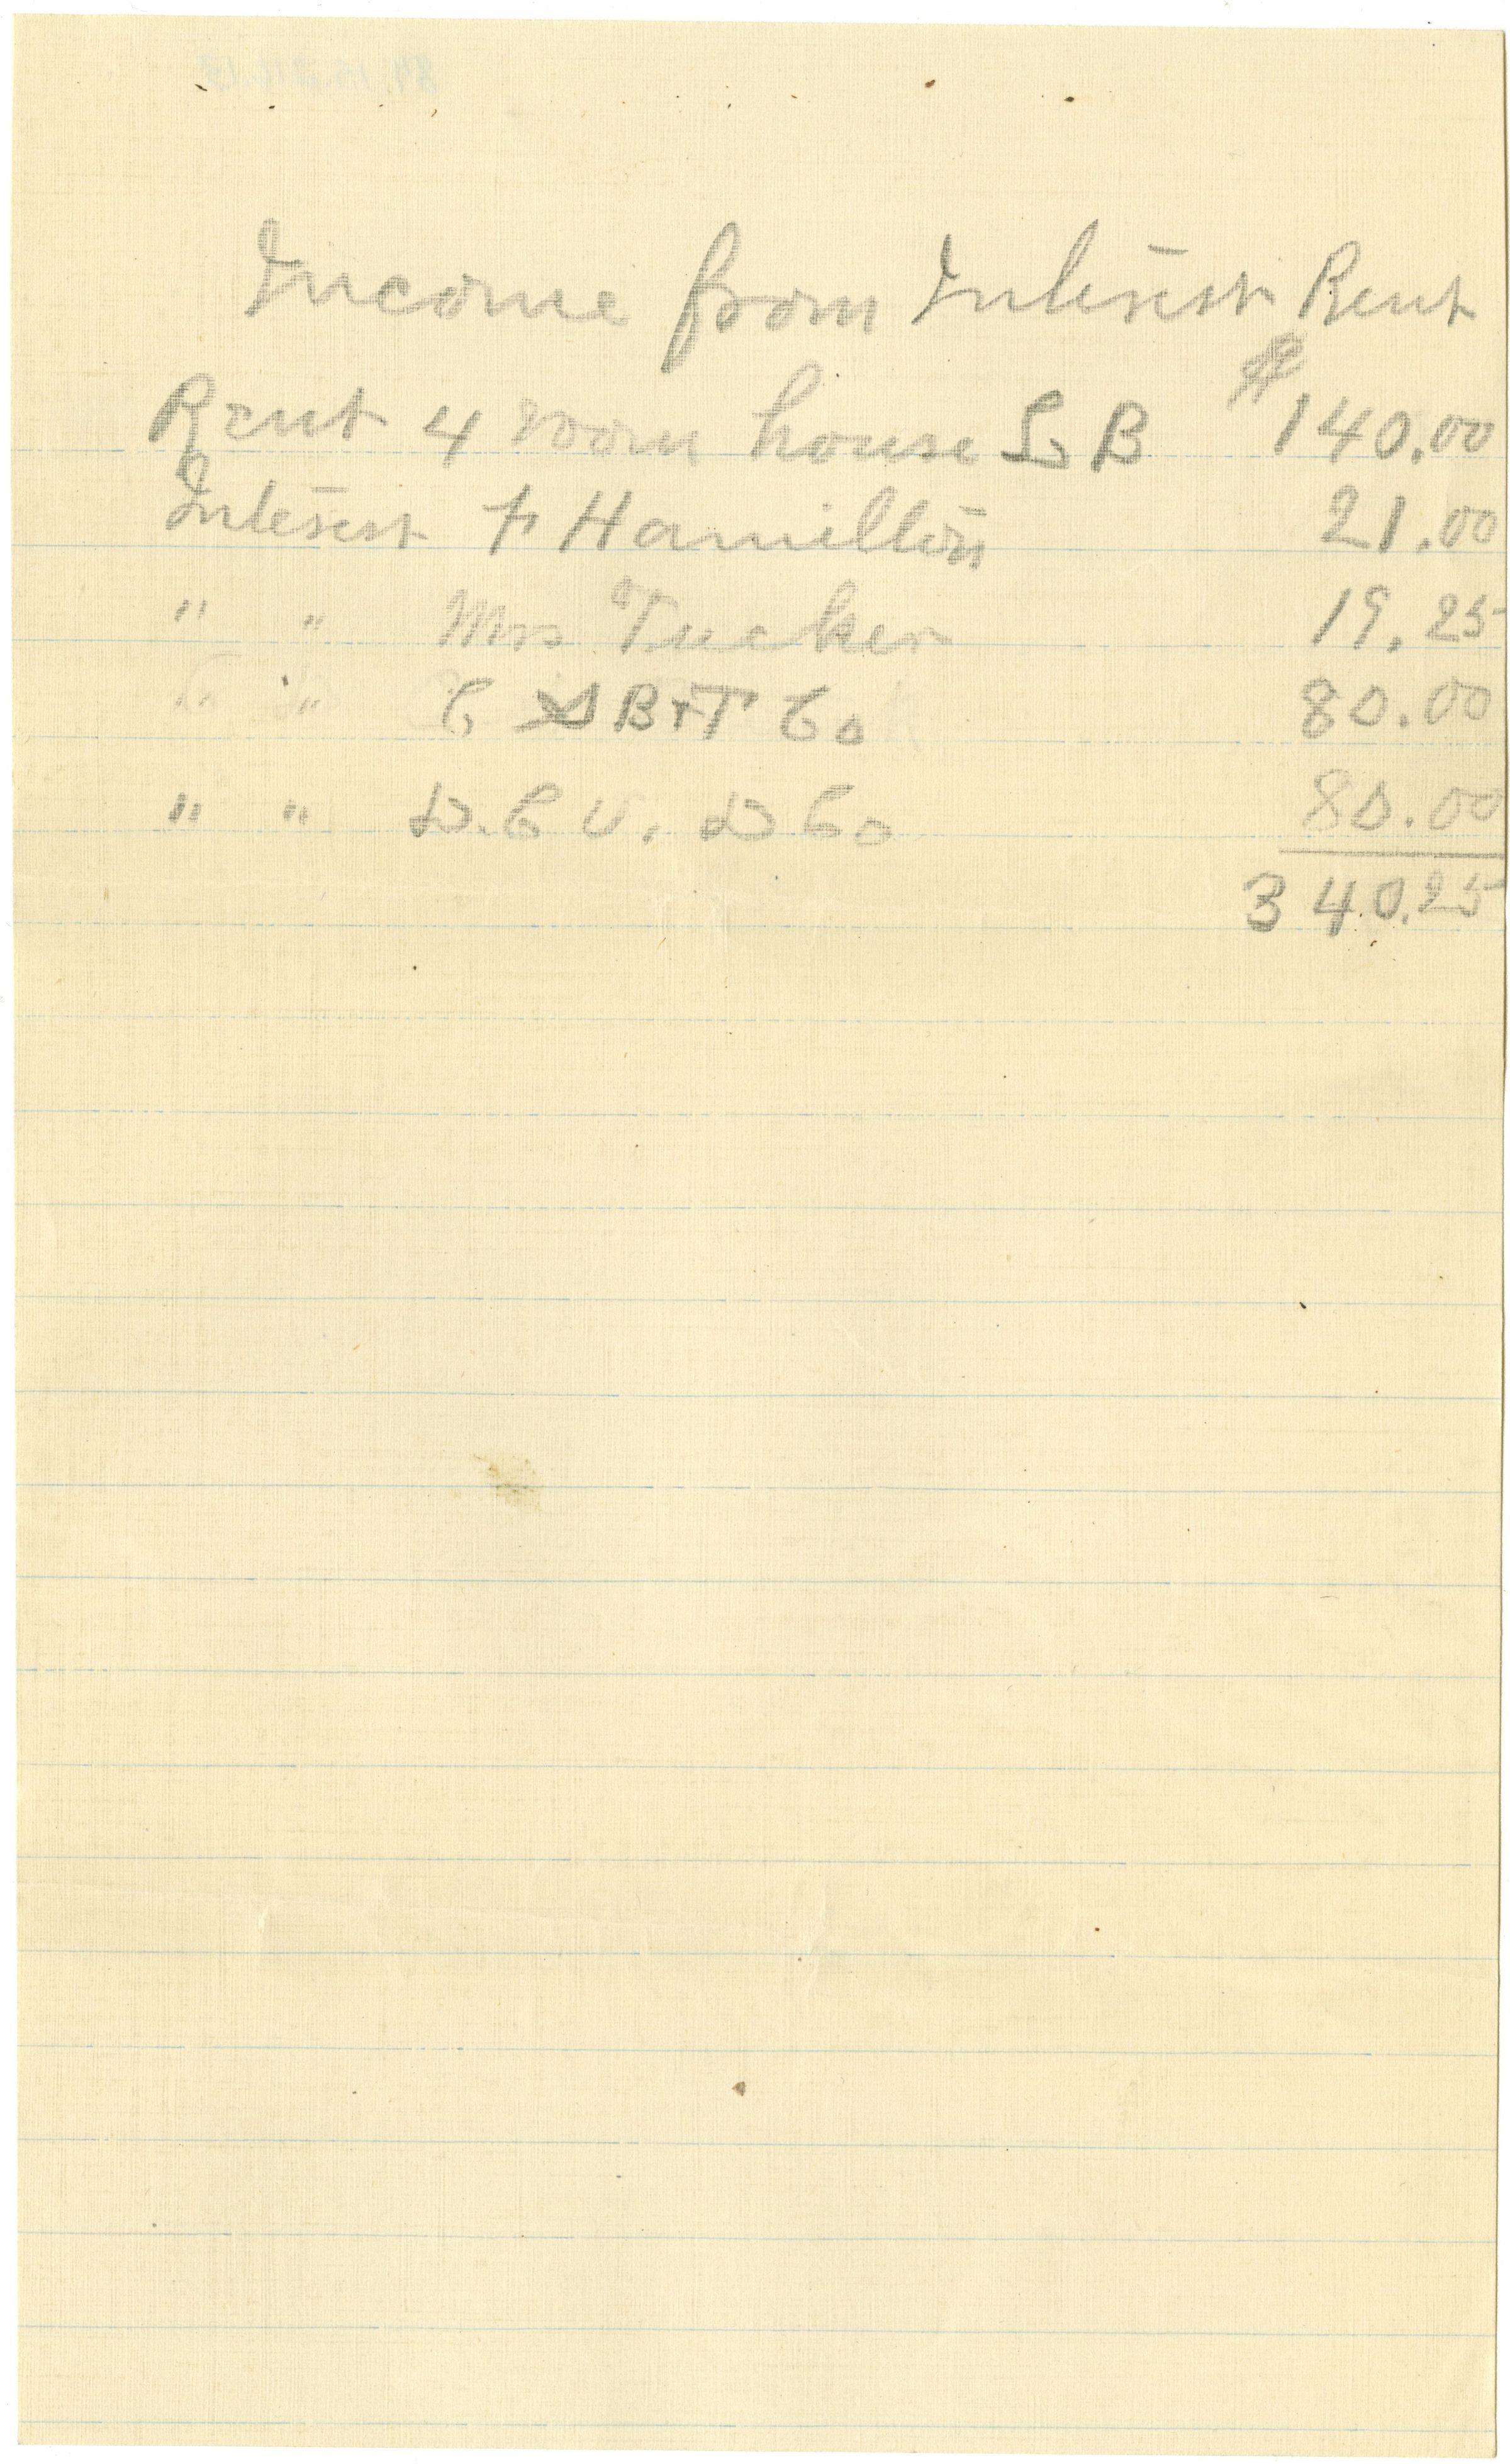 Income from Interest Rent
Rent 4 room house L B $140.00
Interest F Hamilton 21.00
" " Mrs Tucker 19.25
" " C D B+T Co 80.00
" " D.C U. D Co 80.00
340.25